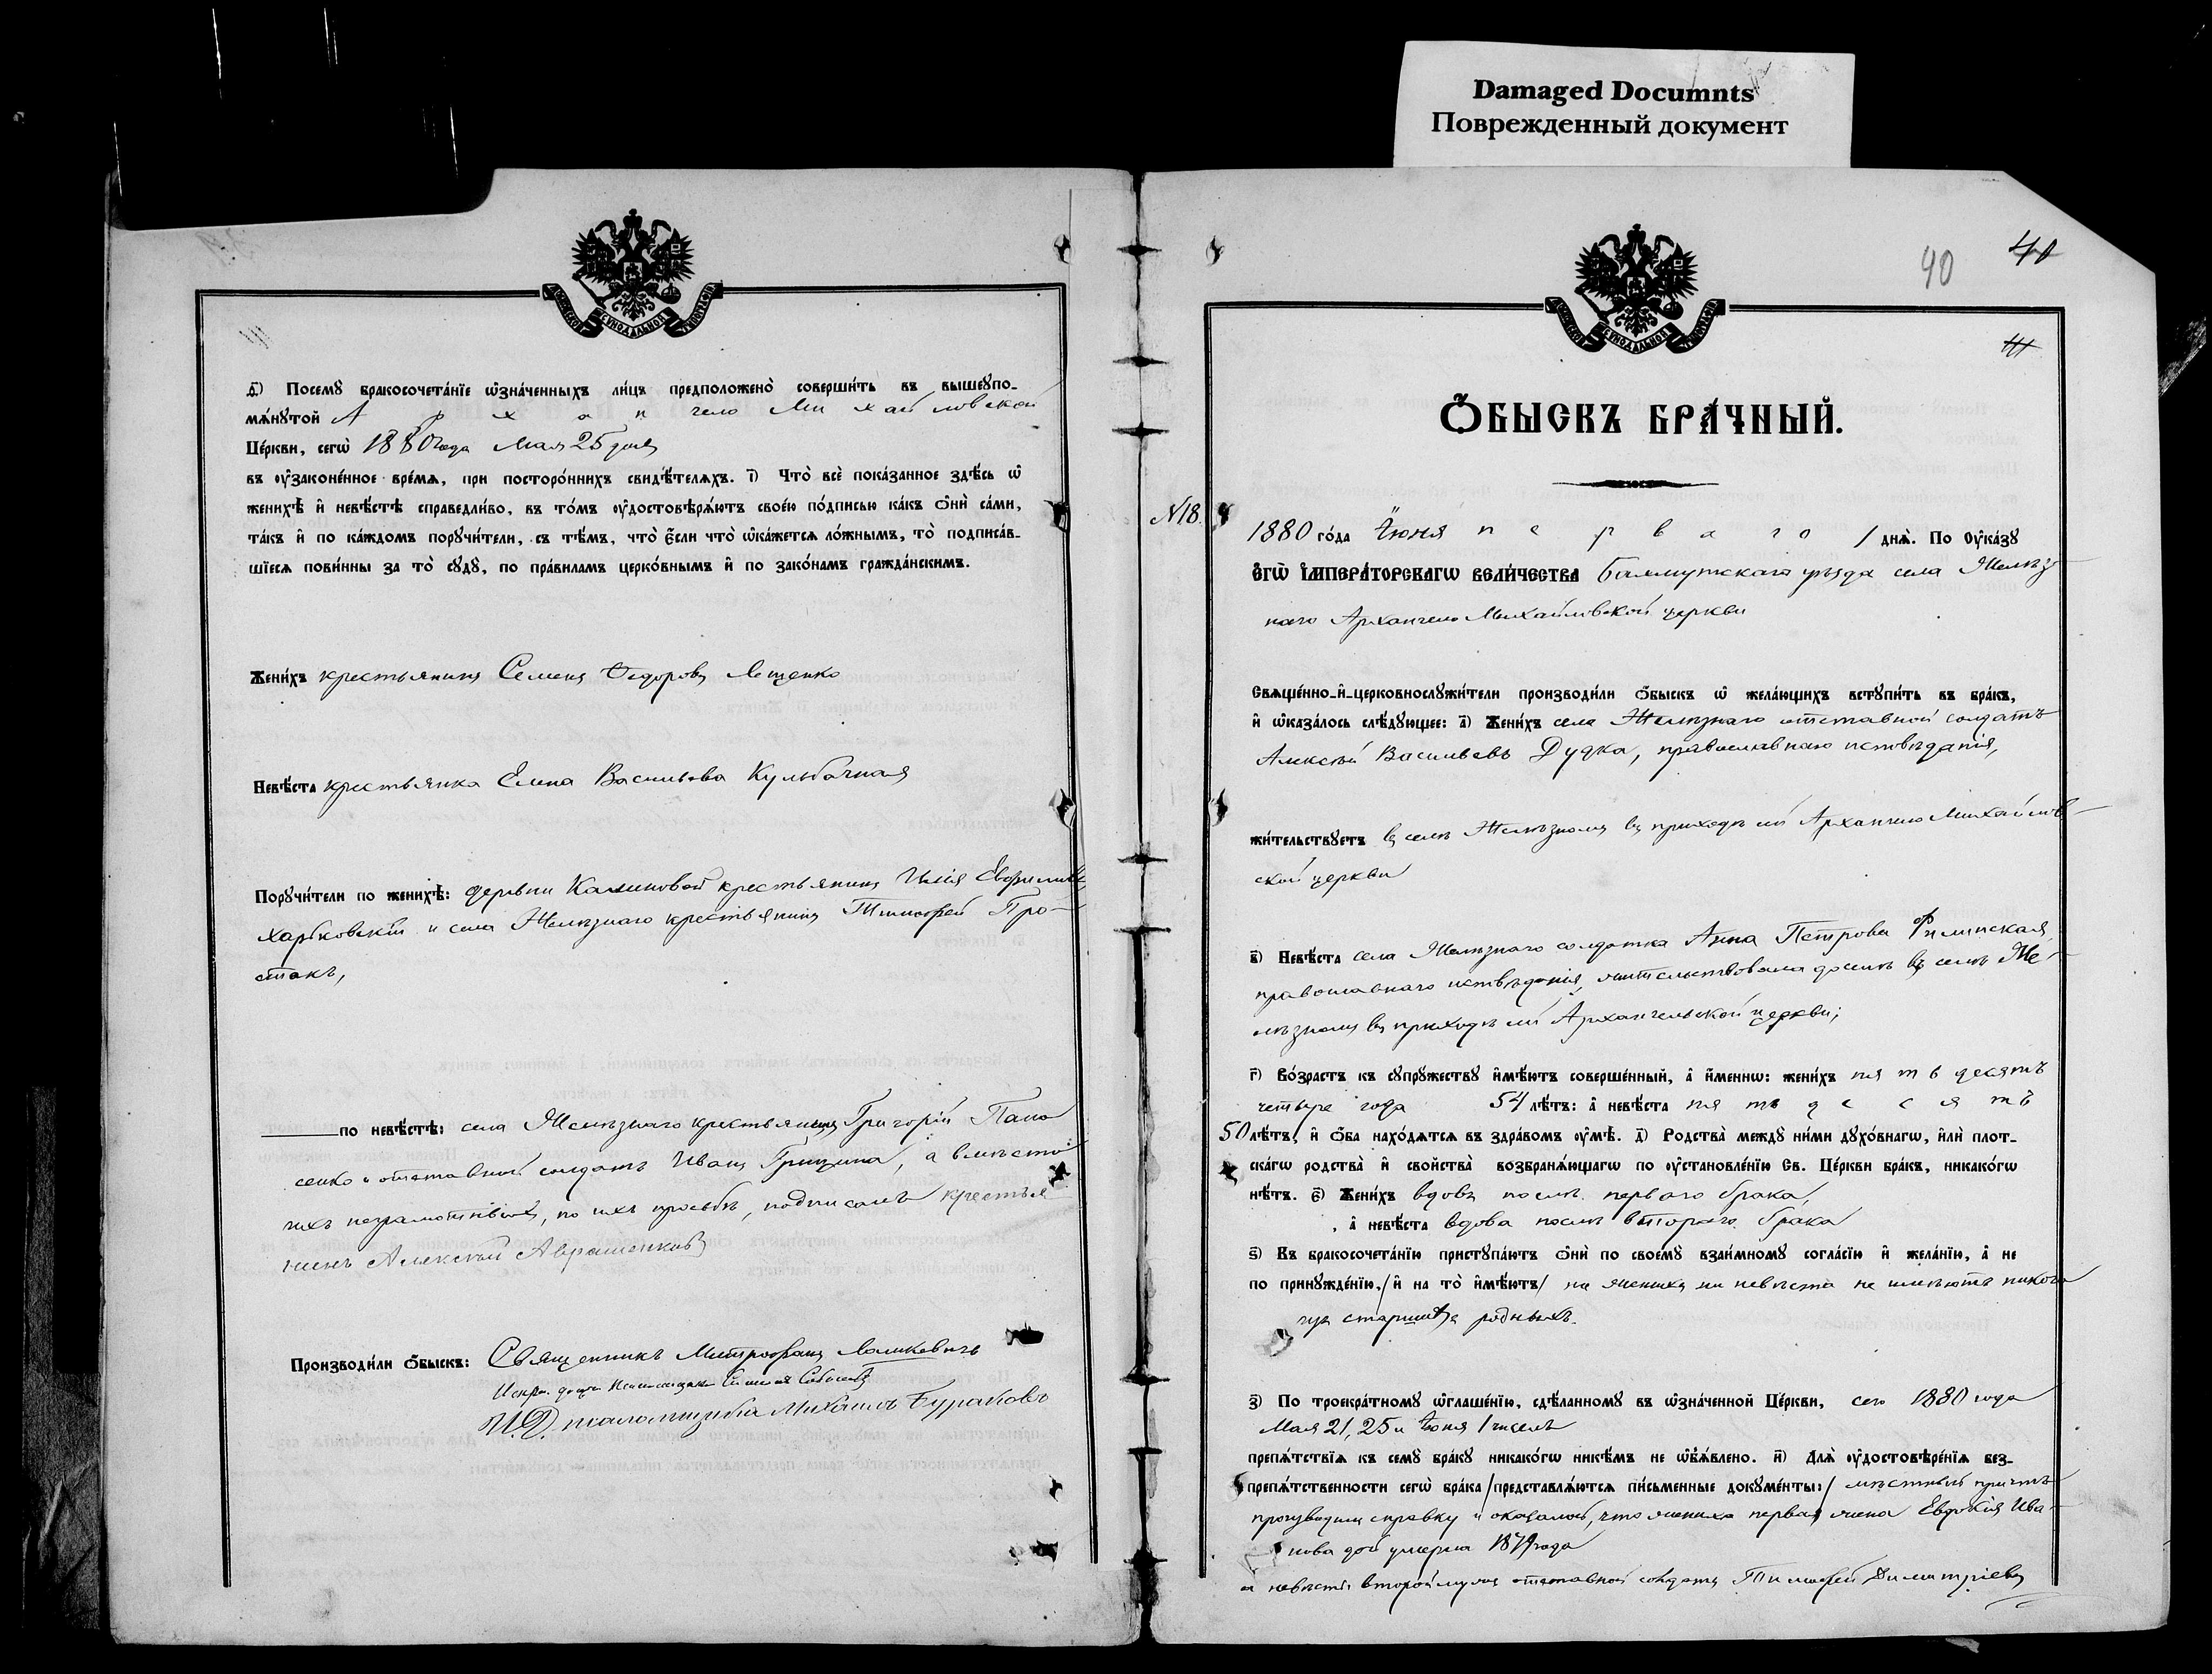 Damaged Documnts
Поврежденный документ
ѳ) Посему бракосочетанїе ѡзначенныхъ лицъ предположено совершить въ вышеупо-
мѧнутой Архангело Михайловской
Церкви, сегѡ 1880 года Мая 25 дня
въ ѹзаконенное времѧ, при постороннихъ свидѣтелѧхъ. ї) Что всѐ показанное здѣсь ѡ
женихѣ и невѣстѣ справедливо, въ томъ ѹдостовѣрѧютъ своею подписью какъ ѻни сами,
такъ и по каждомъ поручители, съ тѣмъ, что если что ѡкажется ложнымъ, то подписав-
шїеся повинны за то суду, по правиламъ церковнымъ и по законамъ гражданскимъ.
Женихъ крестьянинъ Семенъ Ѳедоровъ Лещенко
Невѣста крестьянка Елена Васильева Кульбачная
Поручители по женихѣ: деревни Калиновой крестьянинъ Илія
Харьковскій и села Желѣзнаго крестьянинъ Тимофей Про-
стакъ,
по невѣстѣ: села Желѣзнаго крестьянинъ Григорій Пана
сенко и отставной солдатъ Иванъ Грицина, а вмѣсто
ихъ неграмотныхъ, по ихъ просьбѣ, подписалъ крестья
нинъ Алексѣй Аврашенковъ
Производили ѻбыскъ: Священникъ Митрофанъ
И.Д. псаломщика Михаилъ Бураковъ
40
40
ѺБЫСКЪ БРАЧНЫЙ.
N18.
1880 года Іюня перваго 1 днѧ. По ѹказу
ЕГѠ ИМПЕРАТОРСКАГѠ ВЕЛИЧЕСТВА Бахмутскаго уѣзда села Желѣз-
наго Архангело Михайловской церкви
Свѧщенно-и-церковнослужители производили ѻбыскъ ѡ желающихъ вступить въ бракъ,
и ѡказалось слѣдующее: а) Женихъ села Желѣзнаго отставной солдатъ
Алексѣй Васильевъ Дудка, православнаго исповѣданія,
жительствуетъ въ селѣ Желѣзномъ въ приходѣ сей Архангело Михайлов-
ской церкви
в) Невѣста села Желѣзнаго солдатка Анна Петрова Филинская
православнаго исповѣданія, жительствовала доселѣ въ селѣ Же-
лѣзномъ въ приходѣ сей Архангельской церкви;
г) Возрастъ къ супружеству имѣютъ совершенный, а именнѡ: женихъ пятьдесятъ
четыре года 54 лѣтъ: а невѣста пятьдесятъ
50 лѣтъ, и ѻба находѧтся въ здравомъ ѹмѣ. д) Родства между ними духовнагѡ, или плот-
скагѡ родства и свойства возбранѧющагѡ по ѹстановленїю Св. Церкви бракъ, никакогѡ
нѣтъ. є) Женихъ вдовъ послѣ перваго брака,
, а невѣста вдова послѣ втораго брака
ѕ) Въ бракосочетанїю приступаютъ ѻни по своему взаимному согласїю и желанїю, а не
по принужденїю, / и на то имѣютъ / ни женихъ ни невѣста не имѣютъ никого
изъ старшихъ родныхъ.
з) По троекратному ѡглашенїю, сдѣланному въ ѡзначенной Церкви, сего 1880 года
Мая 21, 25 и Іюня 1 чиселъ
препѧтствїѧ къ сему браку никакогѡ никѣмъ не ѡбъѧвлено. и) Длѧ ѹдостовѣренїѧ без-
препѧтственности сегѡ брака / представлѧются письменные документы: / мѣстный причтъ
производилъ справку и оказалось, что жениха первая жена Евдокія Ива-
нова дой умерла 1879 года
а невѣсты второй мужъ отставной солдатъ Тимофей Димитріевъ